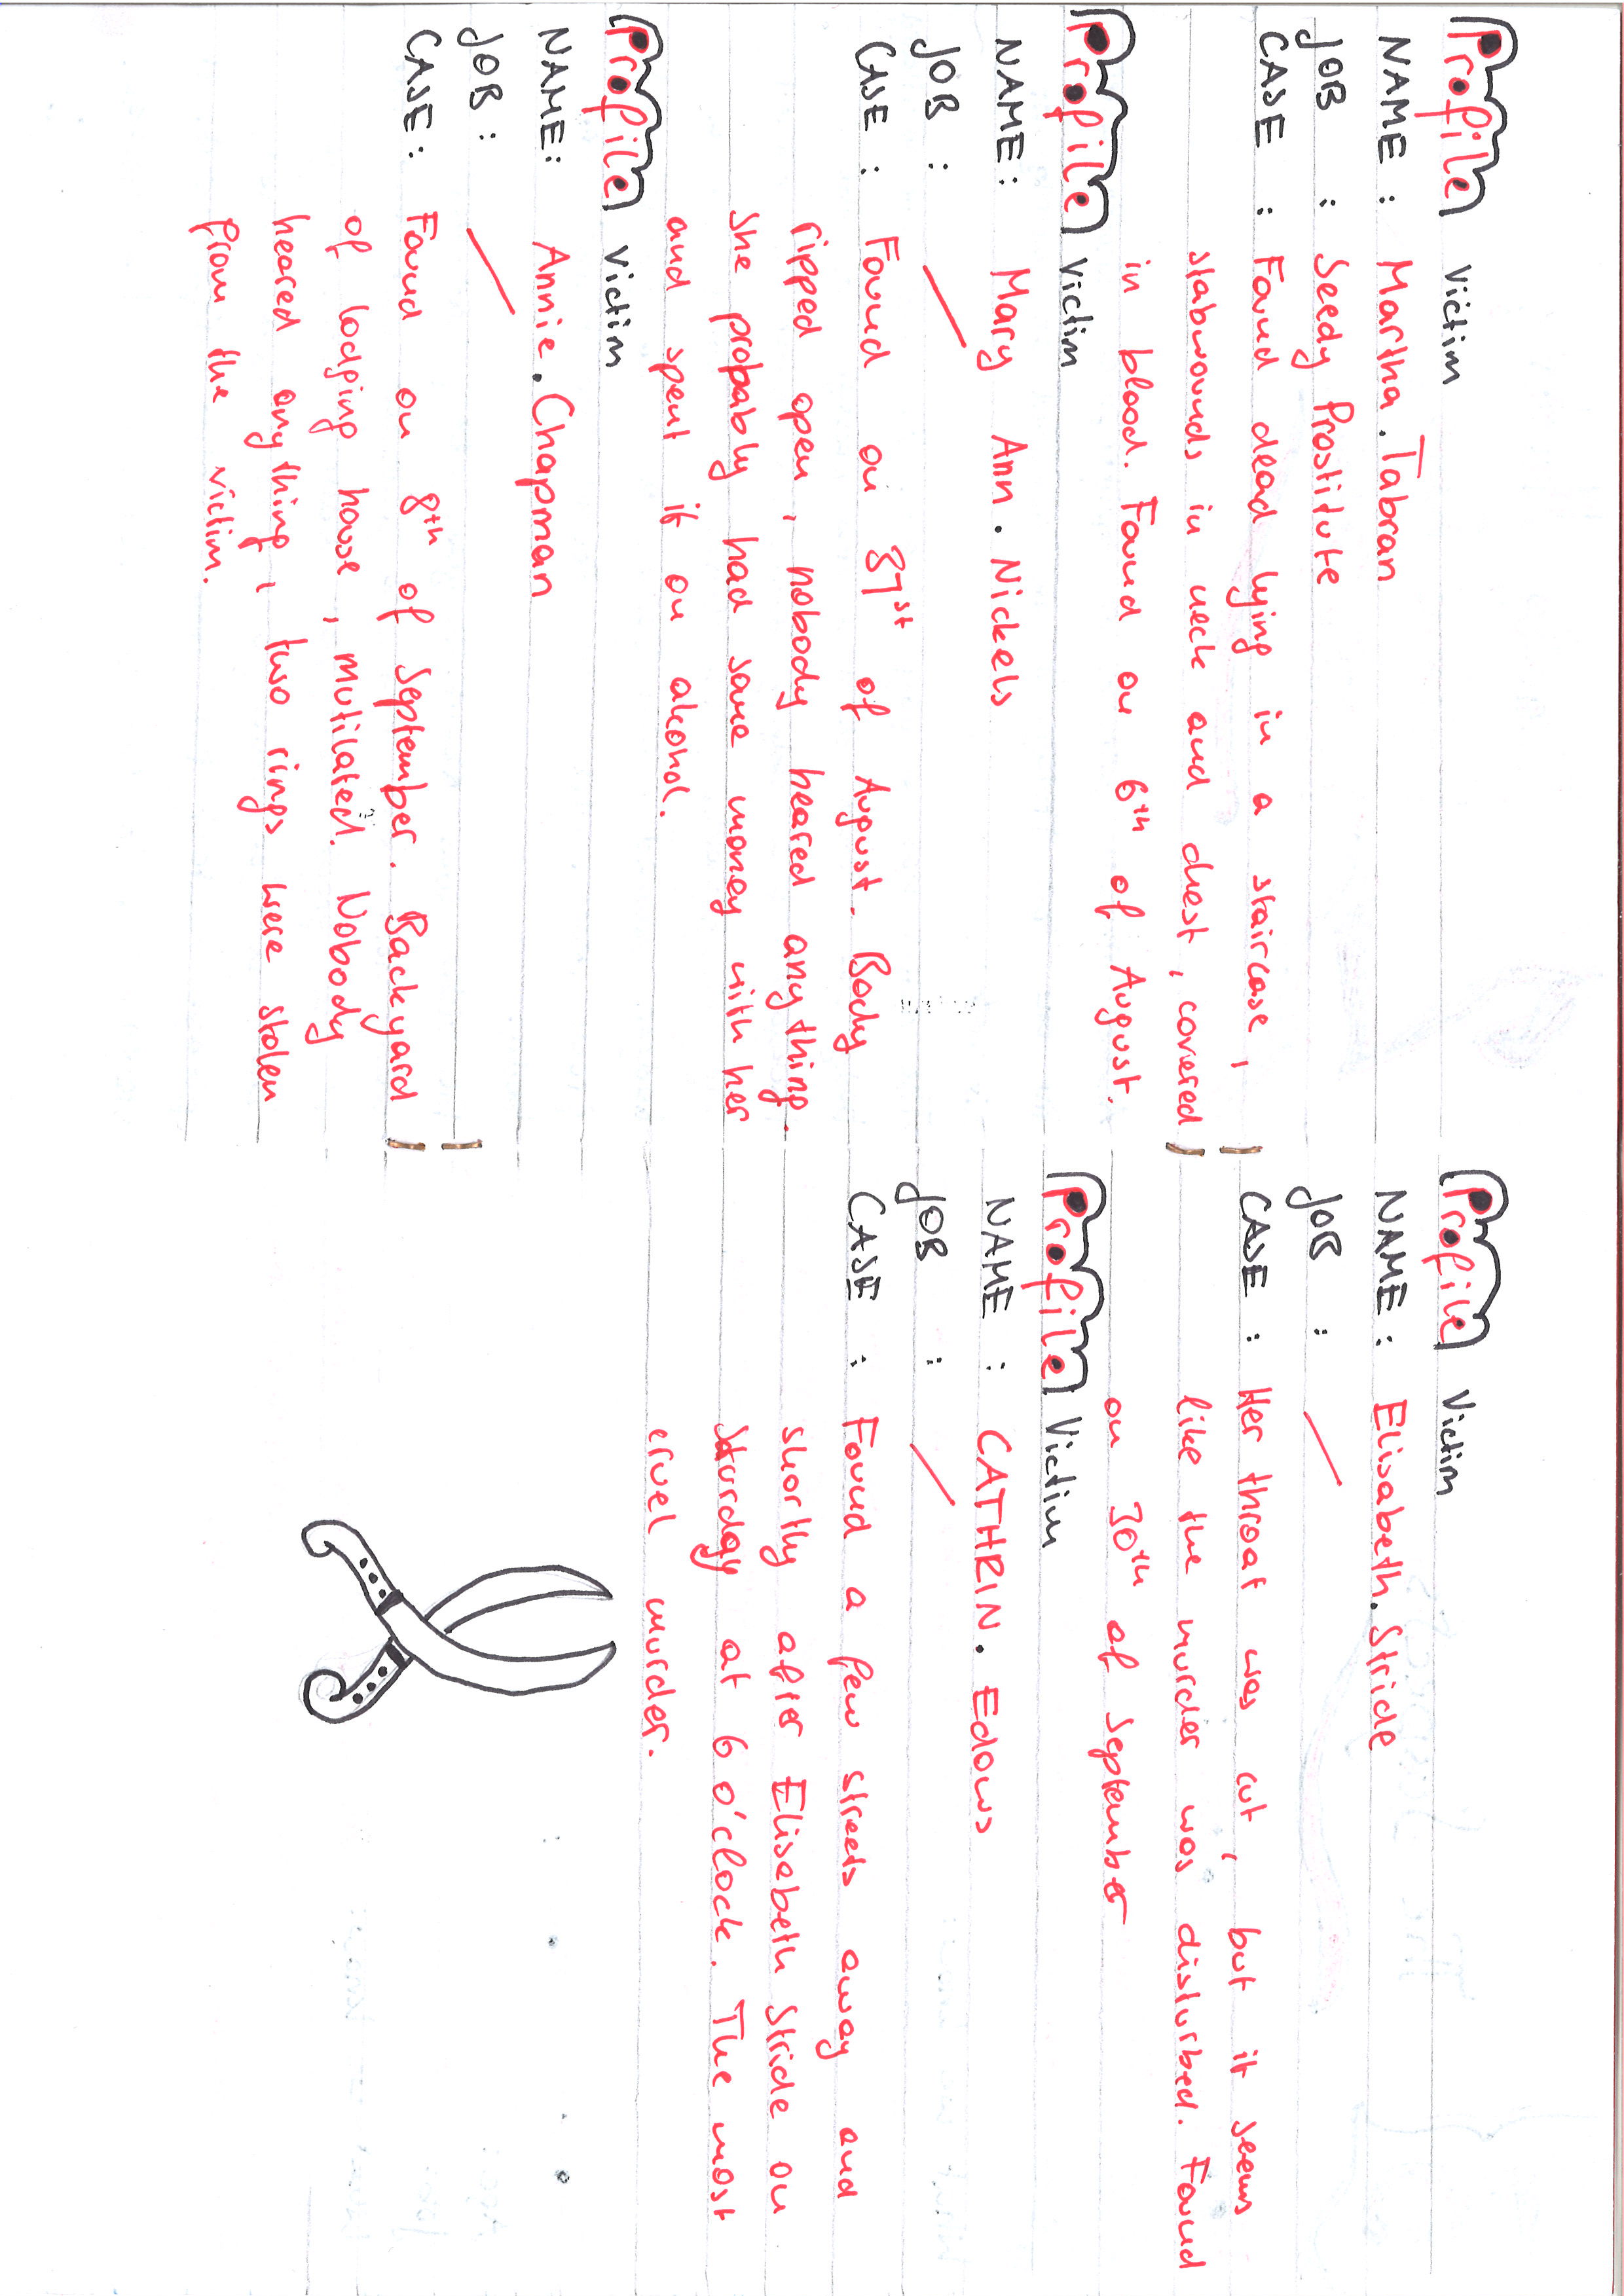 Profile Victim
NAME : Martha . Tabran
JOB : Seedy Prostitute
CASE : Found dead lying in a staircase,
stabwounds in neck and chest, covered
in blood. Found on 6th of August.
Profile Victim
NAME: Mary Ann . Nickels
JOB :
CASE : Found on 31st of August. Body
ripped open, nobody heared anything.
she probably had some money with her
and spent it on alcohol.
Profile Victim
NAME: Annie . Chapman
JOB :
CASE : Found on 8th of September. Backyard
of lodging house, mutilated. Nobody
heared anything, two rings were stolen
from the victim.
Profile Victim
NAME : Elisabeth . Stride
JOB :
CASE : Her throat was cut, but it seems
like the murder was disturbed. Found
on 30th of September
Profile Victim
NAME : CATHRIN . Edows
JOB :
CASE : Found a few streets away and
shortly after Elisabeth Stride on
Sturday at 6 o'clock. The most
cruel murder.